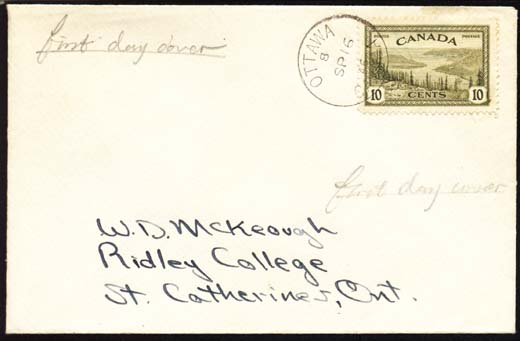 first day cover
OTTAWA
8
SP 16
CANADA
POSTES POSTAGE
10 CENTS 10
first day cover
W. D. McKeough
Ridley College
St. Catherines, Ont.